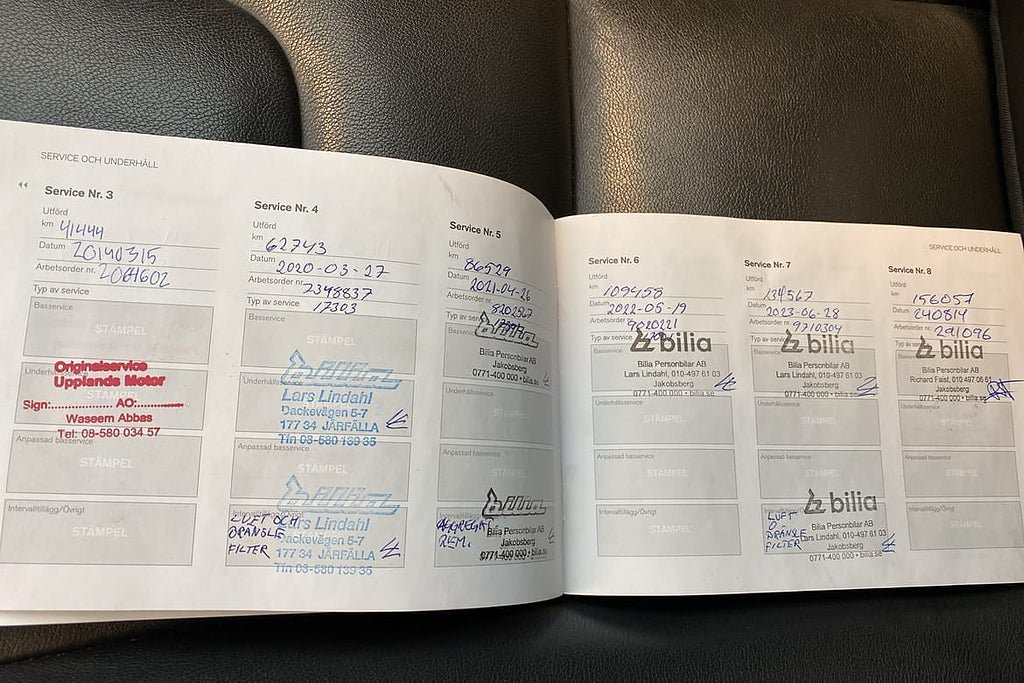 SERVICE OCH UNDERHÅLL
Service Nr. 3
Utförd
km 41444
Datum 20140315
Arbetsorder nr. 2061602
Typ av service
Basservice
STÄMPEL
Originalservice
Upplands Motor
Sign:............... AO:...............
Waseem Abbas
Tel: 08-580 034 57
Anpassad basservice
STÄMPEL
Intervalltillägg/Övrigt
STÄMPEL
Service Nr. 4
Utförd
km 62743
Datum 2020-03-27
Arbetsorder nr. 7348837
Typ av service 17303
Basservice
STÄMPEL
Underhållsservice
bilia
Lars Lindahl
Dackevägen 5-7
177 34 JÄRFÄLLA
Tfn 08-580 139 35
Anpassad basservice
STÄMPEL
bilia
Intervalltillägg/Övrigt
LUFT OCH
BRÄNSLE
FILTER
Lars Lindahl
Dackevägen 5-7
177 34 JÄRFÄLLA
Tfn 08-580 139 35
Service Nr. 5
Utförd
km 86529
Datum 2021-04-26
Arbetsorder nr.
Typ av service
bilia
Basservice
Bilia Personbilar AB
Jakobsberg
0771-400 000 • bilia.se
Underhållsservice
STÄMPEL
Anpassad basservice
STÄMPEL
bilia
Intervalltillägg/Övrigt
AGGREGAT
REM.
Bilia Personbilar AB
Jakobsberg
0771-400 000 • bilia.se
SERVICE OCH UNDERHÅLL
Service Nr. 6
Utförd
km 109458
Datum 2022-05-19
Arbetsorder nr. 9020221
Typ av service
bilia
Basservice
Bilia Personbilar AB
Lars Lindahl, 010-497 61 03
Jakobsberg
0771-400 000 • bilia.se
Underhållsservice
STÄMPEL
Anpassad basservice
STÄMPEL
Intervalltillägg/Övrigt
STÄMPEL
Service Nr. 7
Utförd
km 134567
Datum 2023-06-28
Arbetsorder nr. 9710304
Typ av service
bilia
Basservice
Bilia Personbilar AB
Lars Lindahl, 010-497 61 03
Jakobsberg
0771-400 000 • bilia.se
Underhållsservice
STÄMPEL
Anpassad basservice
STÄMPEL
bilia
Intervalltillägg/Övrigt
LUFT
O
BRÄNSLE
FILTER
Bilia Personbilar AB
Lars Lindahl, 010-497 61 03
Jakobsberg
0771-400 000 • bilia.se
Service Nr. 8
Utförd
km 156057
Datum 240814
Arbetsorder nr. 291096
Typ av service
bilia
Basservice
Bilia Personbilar AB
Richard Faist, 010-497 06 61
Jakobsberg
0771-400 000 • bilia.se
Underhållsservice
STÄMPEL
Anpassad basservice
STÄMPEL
Intervalltillägg/Övrigt
STÄMPEL